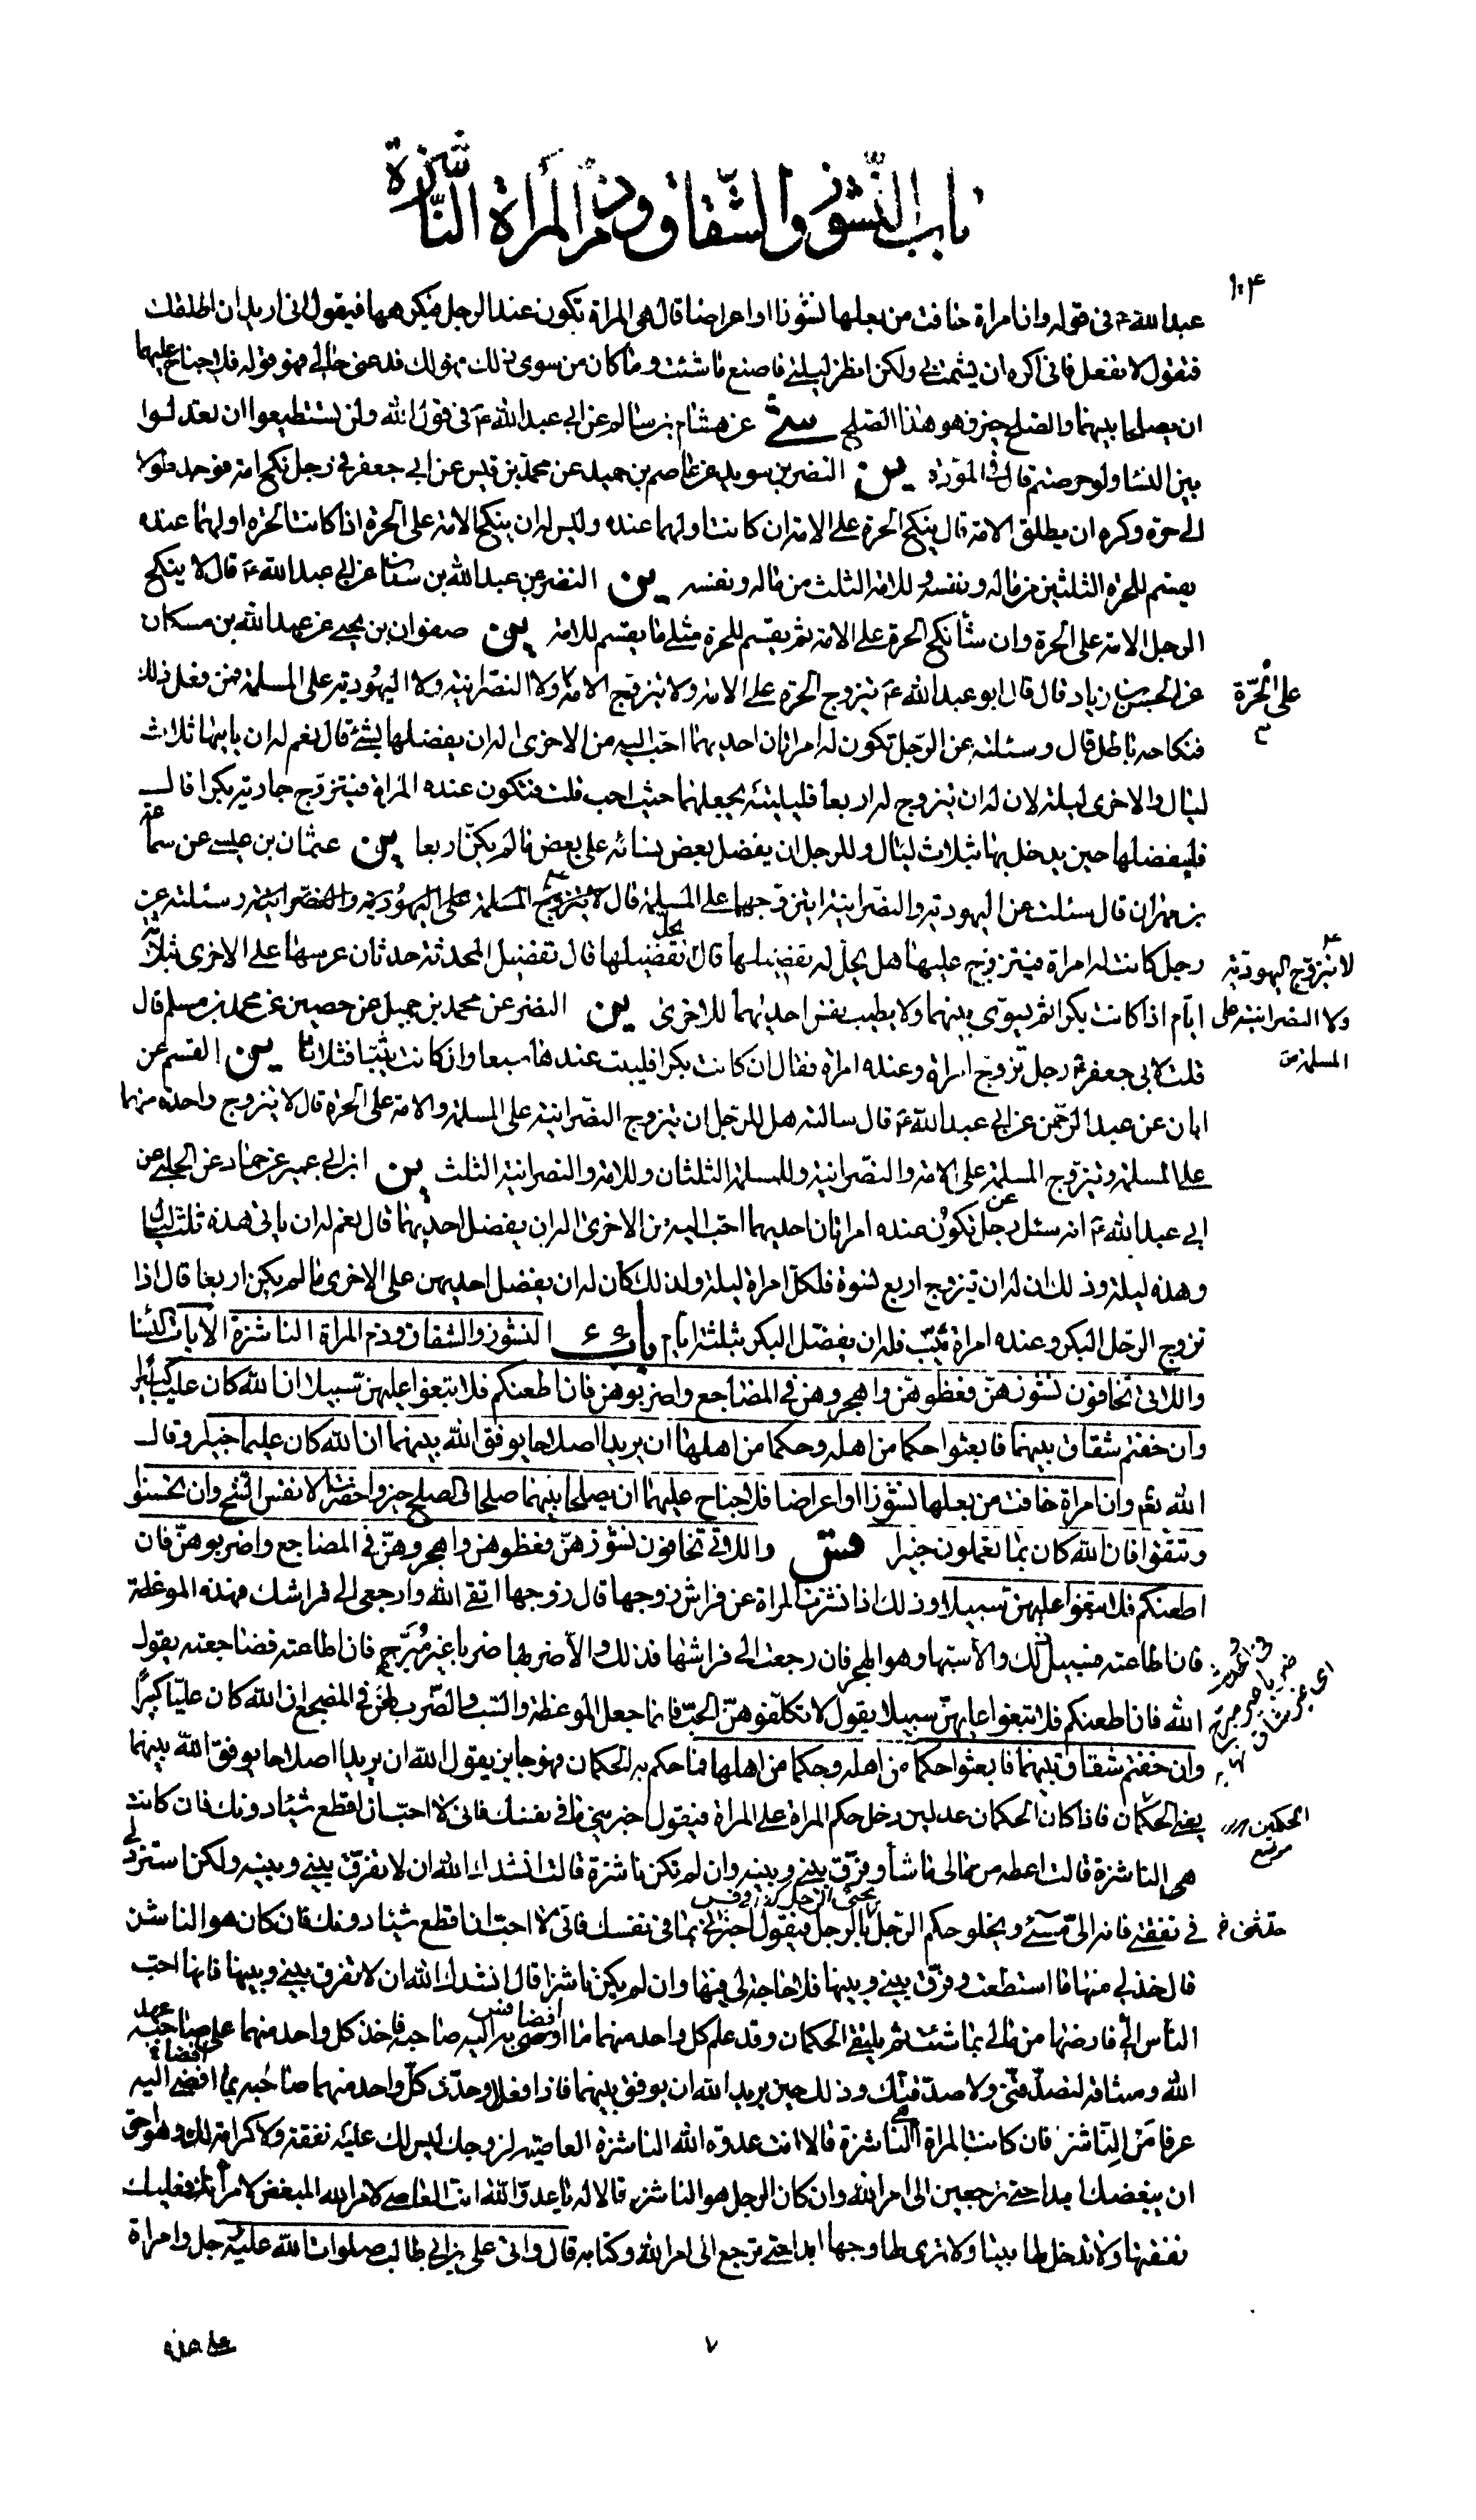 باب النّشوز والشّقاق وذمّ المرأة النّاشزة
۱۰۴
عبد الله ع في قوله وان امراة خافت من بعلها نشوزا او اعراضا قال هي المراة تكون عند الرجل فيكرهها فيقول اني اريد ان اطلقك
فتقول لا تفعل فاني اكره ان يشمت بي ولكن انظر ليلتي فاصنع ما شئت وما كان من سوى ذلك فهو لك فدعني على حالي فهو قوله فلا جناح عليهما
ان يصلحا بينهما والصلح خير وهو هذا الصلح شى عن هشام بن سالم عن ابي عبد الله ع في قول الله ولن تستطيعوا ان تعدلوا
بين النساء ولو حرصتم قال في المودة ين النضر بن سويد عن عاصم بن حميد عن محمد بن قيس عن ابي جعفر في رجل نكح امة فوجد طولا
الى حرة وكره ان يطلق الامة قال ينكح الحرة على الامة ان كانت اولهما عنده وليس له ان ينكح الامة على الحرة اذا كانت الحرة اولهما عنده
يقسم للحرة الثلثين من ماله ونفسه وللامة الثلث من ماله ونفسه ين النضر عن عبد الله بن سنان عن ابي عبد الله ع قال لا ينكح
الرجل الامة على الحرة وان شاء نكح الحرة على الامة ثم يقسم للحرة مثلي ما يقسم للامة ين صفوان بن يحيى عن عبد الله بن مسكان
عن الحسن بن زياد قال قال ابو عبد الله ع تتزوج الحرة على الامة ولا تتزوج الامة ولا النصرانية ولا اليهودية على المسلمة فمن فعل ذلك
على الحرّة
فنكاحه باطل قال وسئلته عن الرجل تكون له امراتان احديهما احب اليه من الاخرى اله ان يفضلها بشيء قال نعم له ان ياتيها ثلاث
ليال والاخرى ليلة لان له ان يتزوج اربعا فليلتيه يجعلهما حيث احب قلت فتكون عنده المراة فيتزوج جارية بكرا قال
فليفضلها حين يدخل بها بثلاث ليال وللرجل ان يفضل بعض نسائه على بعض ما لم يكنّ اربعا ين عثمان بن عيسى عن سماعة
بن مهران قال سئلت عن اليهودية والنصرانية ايتزوجها على المسلمة قال لا يتزوج المسلمة على اليهودية والنصرانية وسئلته عن
رجل كانت له امراة فيتزوج عليها هل يحل له تفضيلها قال تفضيلها قال تفضيل المحدثة حدثان عرسها على الاخرى ثلاثة
لا تتزوج اليهودية
ايام اذا كانت بكرا ثم يسوى بينهما ولا بطيب نفس احديهما للاخرى ين النضر عن محمد بن جميل عن حصين عن محمد بن مسلم قال
ولا النصرانية على
المسلمة
قلت لابي جعفر ع رجل تزوج امراة وعنده امراة فقال ان كانت بكرا فليبت عندها سبعا وان كانت ثيبا فثلاثا ين القسم عن
ابان عن عبد الرحمن عن ابي عبد الله ع قال سالته هل للرجل ان يتزوج النصرانية على المسلمة والامة على الحرة قال لا يتزوج واحدة منهما
على المسلمة ويتزوج المسلمة على الامة والنصرانية وللمسلمة الثلثان وللامة والنصرانية الثلث ين ابن ابي عمير عن حماد عن الحلبي عن
ابي عبد الله ع انه سئل عن رجل تكون عنده امراتان احديهما احب اليه من الاخرى اله ان يفضل احديهما قال نعم له ان ياتي هذه ثلث ليال
وهذه ليلة وذلك ان له ان يتزوج اربع نسوة فلكل امراة ليلة ولذلك كان له ان يفضل احديهن على الاخرى ما لم يكن اربعا قال اذا
تزوج الرجل البكر وعنده امراة ثيب فله ان يفضل البكر بثلثة ايام باب النشوز والشقاق وذم المراة الناشزة الآيات النساء
واللاتي تخافون نشوزهن فعظوهن واهجروهن في المضاجع واضربوهن فان اطعنكم فلا تبغوا عليهن سبيلا ان الله كان عليا كبيرا
وان خفتم شقاق بينهما فابعثوا حكما من اهله وحكما من اهلها ان يريدا اصلاحا يوفق الله بينهما ان الله كان عليما خبيرا وقال
الله تعم وان امراة خافت من بعلها نشوزا او اعراضا فلا جناح عليهما ان يصلحا بينهما صلحا والصلح خير واحضرت الانفس الشح وان تحسنوا
وتتقوا فان الله كان بما تعملون خبيرا فس واللاتي تخافون نشوزهن فعظوهن واهجروهن في المضاجع واضربوهن فان
اطعنكم فلا تبغوا عليهن سبيلا وذلك اذا نشزت المراة عن فراش زوجها قال زوجها اتقي الله وارجعي الى فراشك فهذه الموعظة
فان اطاعته فسبيل ذلك والا سبها وهو الهجر فان رجعت الى فراشها فذلك والا ضربها ضربا غير مبرّح فان اطاعته فضاجعته يقول
الله فان اطعنكم فلا تبغوا عليهن سبيلا يقول لا تكلفوهن الحب فانما جعل الموعظة والسب والضرب لهن في المضجع ان الله كان عليا كبيرا
وان خفتم شقاق بينهما فابعثوا حكما من اهله وحكما من اهلها فما حكم به الحكمان فهو جايز يقول الله ان يريدا اصلاحا يوفق الله بينهما
يعني الحكمان فاذا كان الحكمان عدلين دخل حكم المراة على المراة فيقول اخبريني ما في نفسك فاني لا احب ان اقطع شيئا دونك فان كانت
الحكمين
هي الناشزة قالت اعطه من مالي ما شاء وفرق بيني وبينه وان لم تكن ناشزة قالت انشدك الله ان لا تفرق بيني وبينه ولكن استزد لي
في نفقتي فانه الي مسيء ويخلو حكم الرجل بالرجل فيقول اخبرني بما في نفسك فاني لا احب ان اقطع شيئا دونك فان كان هو الناشز
قال خذ لي منها ما استطعت وفرق بيني وبينها فلا حاجة لي فيها وان لم يكن ناشزا قال انشدك الله ان لا تفرق بيني وبينها فانها احب
الناس الي فارضها من مالي بما شئت ثم يلتقي الحكمان وقد علم كل واحد منهما ما اوصى به اليه صاحبه فاخذ كل واحد منهما على صاحبه عهد
الله وميثاقه لتصدقني ولاصدقنك وذلك حين يريد الله ان يوفق بينهما فاذا فعلا وحدث كل واحد منهما صاحبه بما افضى اليه
عرفا من الناشز فان كانت المراة هي الناشزة قالا انت عدوة الله الناشزة العاصية لزوجك ليس لك عليه نفقة ولا كرامة لك وهو احق
ان يبغضك ابدا حتى ترجعين الى امر الله وان كان الرجل هو الناشز قالا له يا عدو الله انت العاصي لامر الله المبغض لامراتك فعليك
نفقتها ولا تدخل لها بيتا ولا ترى لها وجها ابدا حتى ترجع الى امر الله وكتابه قال واتى علي بن ابي طالب صلوات الله عليه رجل وامراة
۷